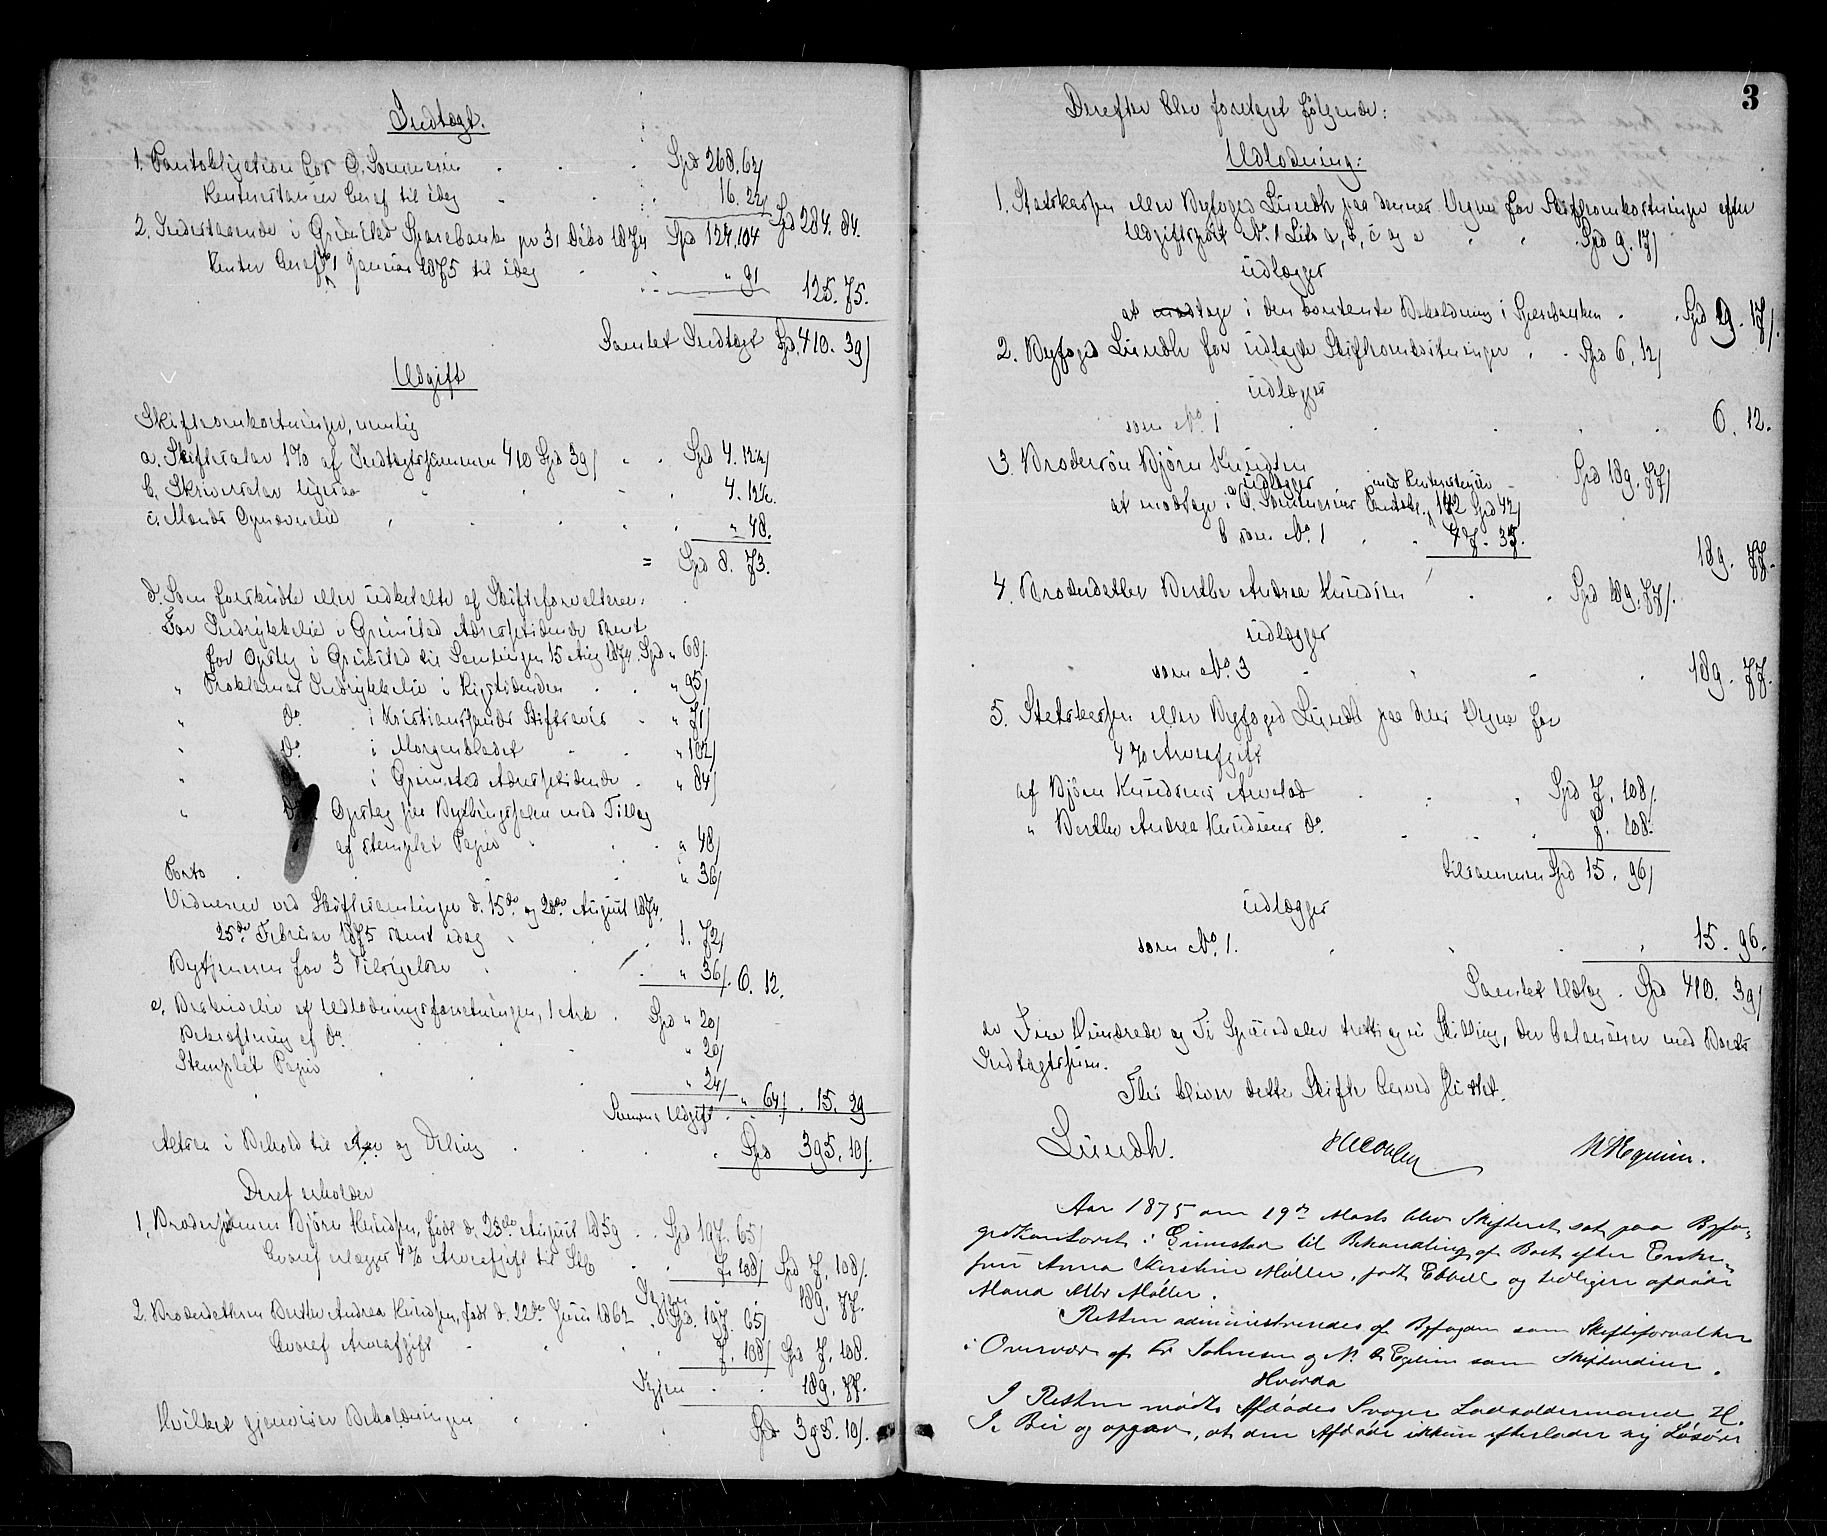 Indtægt.
1. Pantobligation hos O. Sommersen . . . Spd 268. 62/
Renterestance heraf til idag . . . 16. 22/ Spd 284. 84.
2. Indestaaende i Grimstad Sparebank pr 31 Decbr 1874 Spd 124. 104
Renter heraf fra 1 Januar 1875 til idag . . " 91 125. 75.
Samlet Indtægt Spd. 410. 39/
Udgift
Skifteomkostninger, nemlig
a. Skiftesalær 1% af Indtægtssummen 410 Spd 39/ . . Spd 4. 12½/
b. Skriversalær ligesaa . . . 4. 12½.
c. Mænds Opnævnelse . . . " 48.
= Spd 8. 73.
d. Som forskudte eller udbetalte af Skifteforvalteren:
For Indrykkelse i Grimstad Adressetidende samt
for Opslag i Grimstad til Samlingen 15 Aug 1874. Spd " 68/.
" Proklamas Indrykkelse i Rigstidenden . . " 95/
" Do. i Kristianssands Stiftsavis . " 71/
" Do. i Morgenbladet . . " 102/
" Do. i Grimstad Adressetidende . " 84/
" Do. Opslag paa Bythingsstuen med Tillæg
af stemplet Papir . . . " 48/
Porto . . . " 36/
Vidnerne ved Skiftesamlinger d. 15de og 28de August 1874,
25de Februar 1875 samt idag . . . 1. 72/
Bytjeneren for 3 Tilsigelser . . " 36/. 6. 12.
e. Beskrivelse af Udlodningsforretningen, 1 Ark . Spd " 20/
Bekræftning af Do. . . . " 20/
Stemplet Papir . . . " 24/ " 64/. 15. 29
Summa Udgift
Altsaa i Behold til Arv og Deling . . . Spd 395. 10/.
Deraf erholder
1. Brodersønnen Bjørn Knudsen, født d. 23de August 1859 . . Spd 197. 65/
hvoraf erlægges 4% Arveafgift til Stk . . 7. 108/ Spd 7. 108/.
Igjen 189. 77.
2. Broderdatteren Berthe Andrea Knudsen, født d. 22de Juni 1862 . Spd. 197. 65/
hvoraf Arveafgift . . . 7. 108/ Spd 7. 108.
Igjen . . 189. 77.
Hvilket gjenviser Beholdningen . . . Spd 395. 10/.
3
Derefter blev foretaget følgende:
Udlodning:
1. Statskassen eller Byfoged Lundh paa dennes Vegne for Skifteomkostninger efter
Udgiftspost No. 1 Litr a, b, c og e . . Spd 9. 17/
udlægges
at modtage i den kontante Beholdning i Sparebanken . . Spd 9. 17/.
2. Byfoged Lundh for udlagte Skifteomkostninger . . Spd 6. 12/
udlægges
som No. 1 . . . 6. 12.
3. Brodersøn Bjørn Knudsen Spd 189. 77/
udlægges
at modtage: a O. Sommersens Pantobl. med Renterestance 142 Spd 42/
b som No. 1 . . 47. 35. 189. 77.
4. Broderdatter Berthe Andrea Knudsen . . Spd 189. 77/.
udlægges
som No. 3 . . . 189. 77.
5. Statskassen eller Byfoged Lundh paa dens Vegne for
4% Arveafgift
af Bjørn Knudsens Arvelod . . . Spd 7. 108/.
" Berthe Andrea Knudsens Do. . . . 7. 108.
tilsammen Spd 15. 96/
udlægges
som No. 1. . . . 15. 96.
Samlet Udlæg . Spd 410. 39/
er Fire Hundrede og Ti Speciedaler tretti og ni Skilling, der balancerer med Boets
Indtægtssum.
Thi bliver dette Skifte herved sluttet.
Lundh. N. Egelien.
Aar 1875 den 19de Marts blev Skifteret sat paa Byfo-
gedkontoret i Grimstad til Behandling af Boet efter Enke-
frue Anna Kirstine Møller, født Ebbell og tidligere afdøde
Mand Møller.
Retten administreredes af Byfogden som Skifteforvalter
i Overvær af Johnsen og N. Egelien som Skiftevidner.
Hvorda
I Retten mødte Afdødes Svoger Lodsoldermand H.
J. Bie og opgav, at den Afdøde ikkun efterlader sig Løsøre